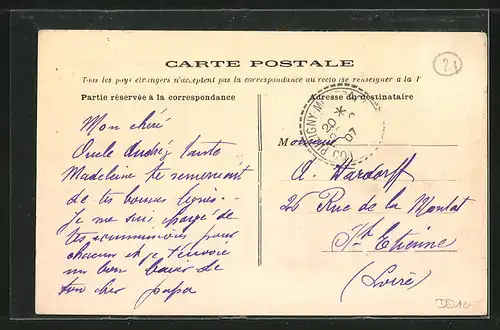 CARTE POSTALE
Tous les pays étrangers n'acceptent pas la correspondance au recto (se renseigner à la P
Partie réservée à la correspondance
Adresse du destinataire
Mon chéri
Oncle André, tante
Madeleine te remercient
de tes bonnes lignes.
Je me suis chargé de
tes commissions pour
chacun et je t'envoie
un bon baiser de
ton cher papa
PULIGNY-M
20
07
Monsieur
A. Wardorff
26 Rue de la Montat
St Etienne
(Loire)
21
DD10